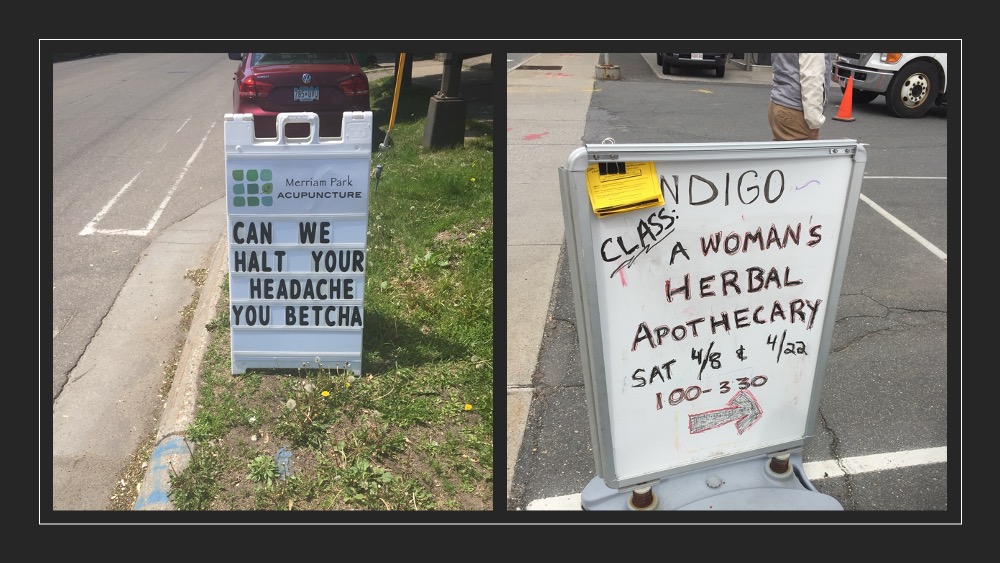 Merriam Park
ACUPUNCTURE
CAN WE
HALT YOUR
HEADACHE
YOU BETCHA
NDIGO
CLASS:
A WOMAN'S
HERBAL
APOTHECARY
SAT 4/8 & 4/22
100-330